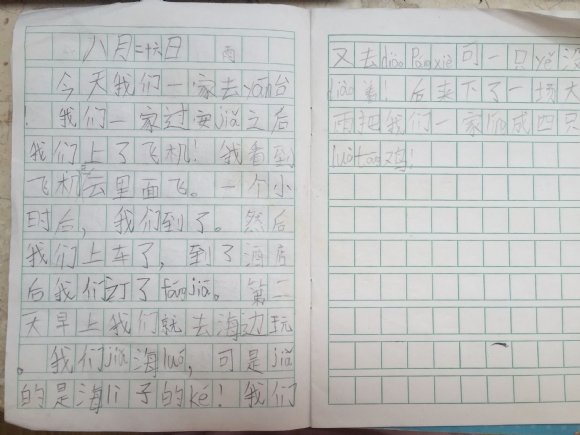 八月二十六日 雨
今天我们一家去yān台
！我们一家过安jiǎ之后
我们上了飞机！我看到
飞机云里面飞。一个小
时后，我们到了。然后
我们上车了，到了酒店
后我们订了fángjiā。第二
天早上我们就去海边玩
。我们jiǎ海luó，可是jiǎ
的是海lì子的ké！我们
又去diào Pángxiè可一只yě没
diào！后来下了一场大
雨把我们一家 成四只
luò tāng鸡！